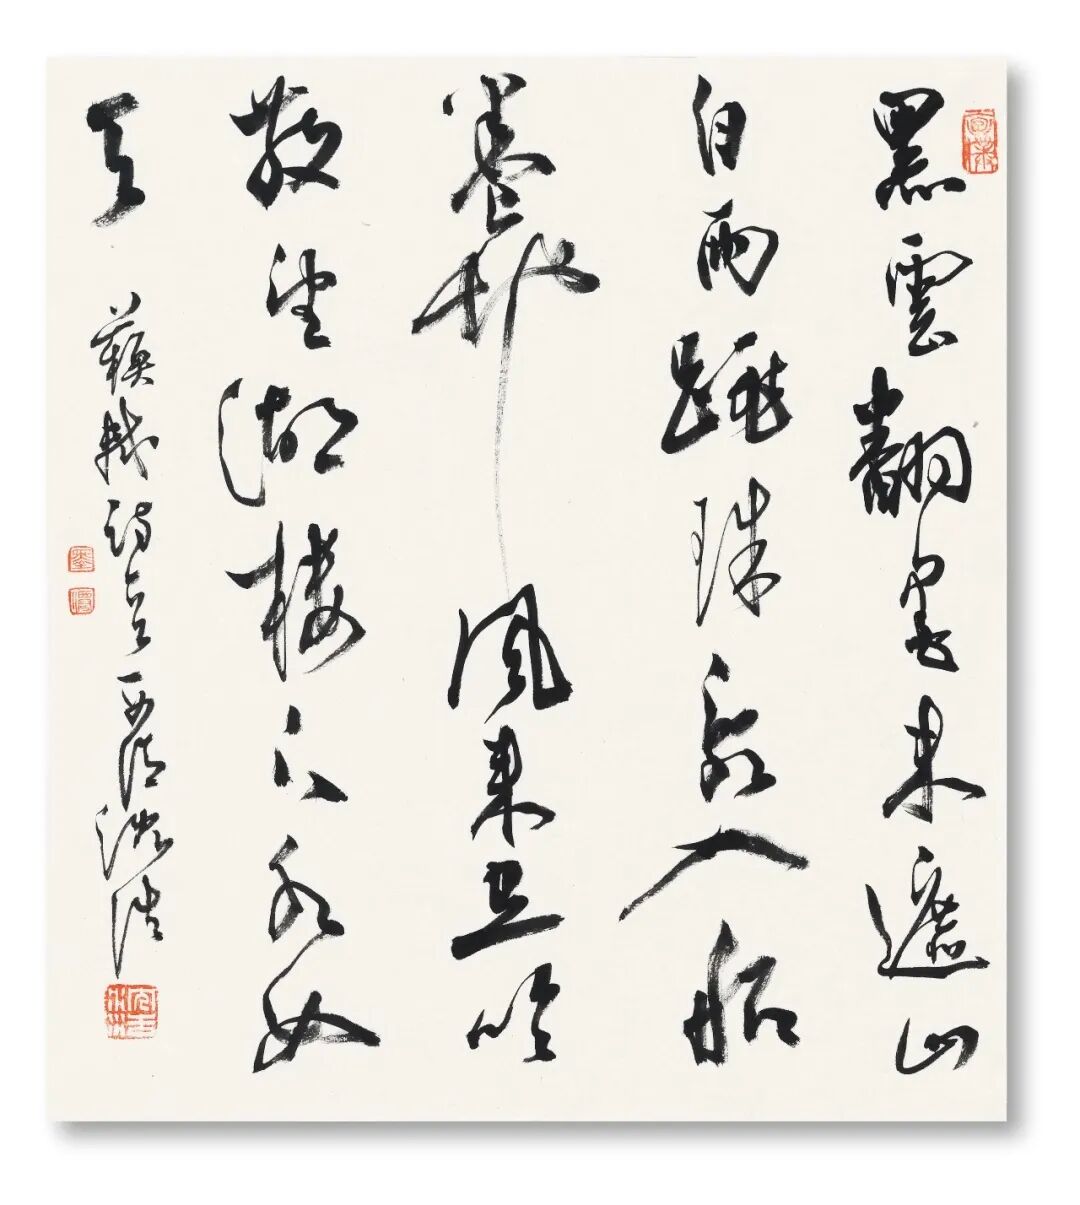 黑雲翻墨未遮山
白雨跳珠亂入船
卷地風來忽吹
散望湖樓下水如
天
蘇軾詩